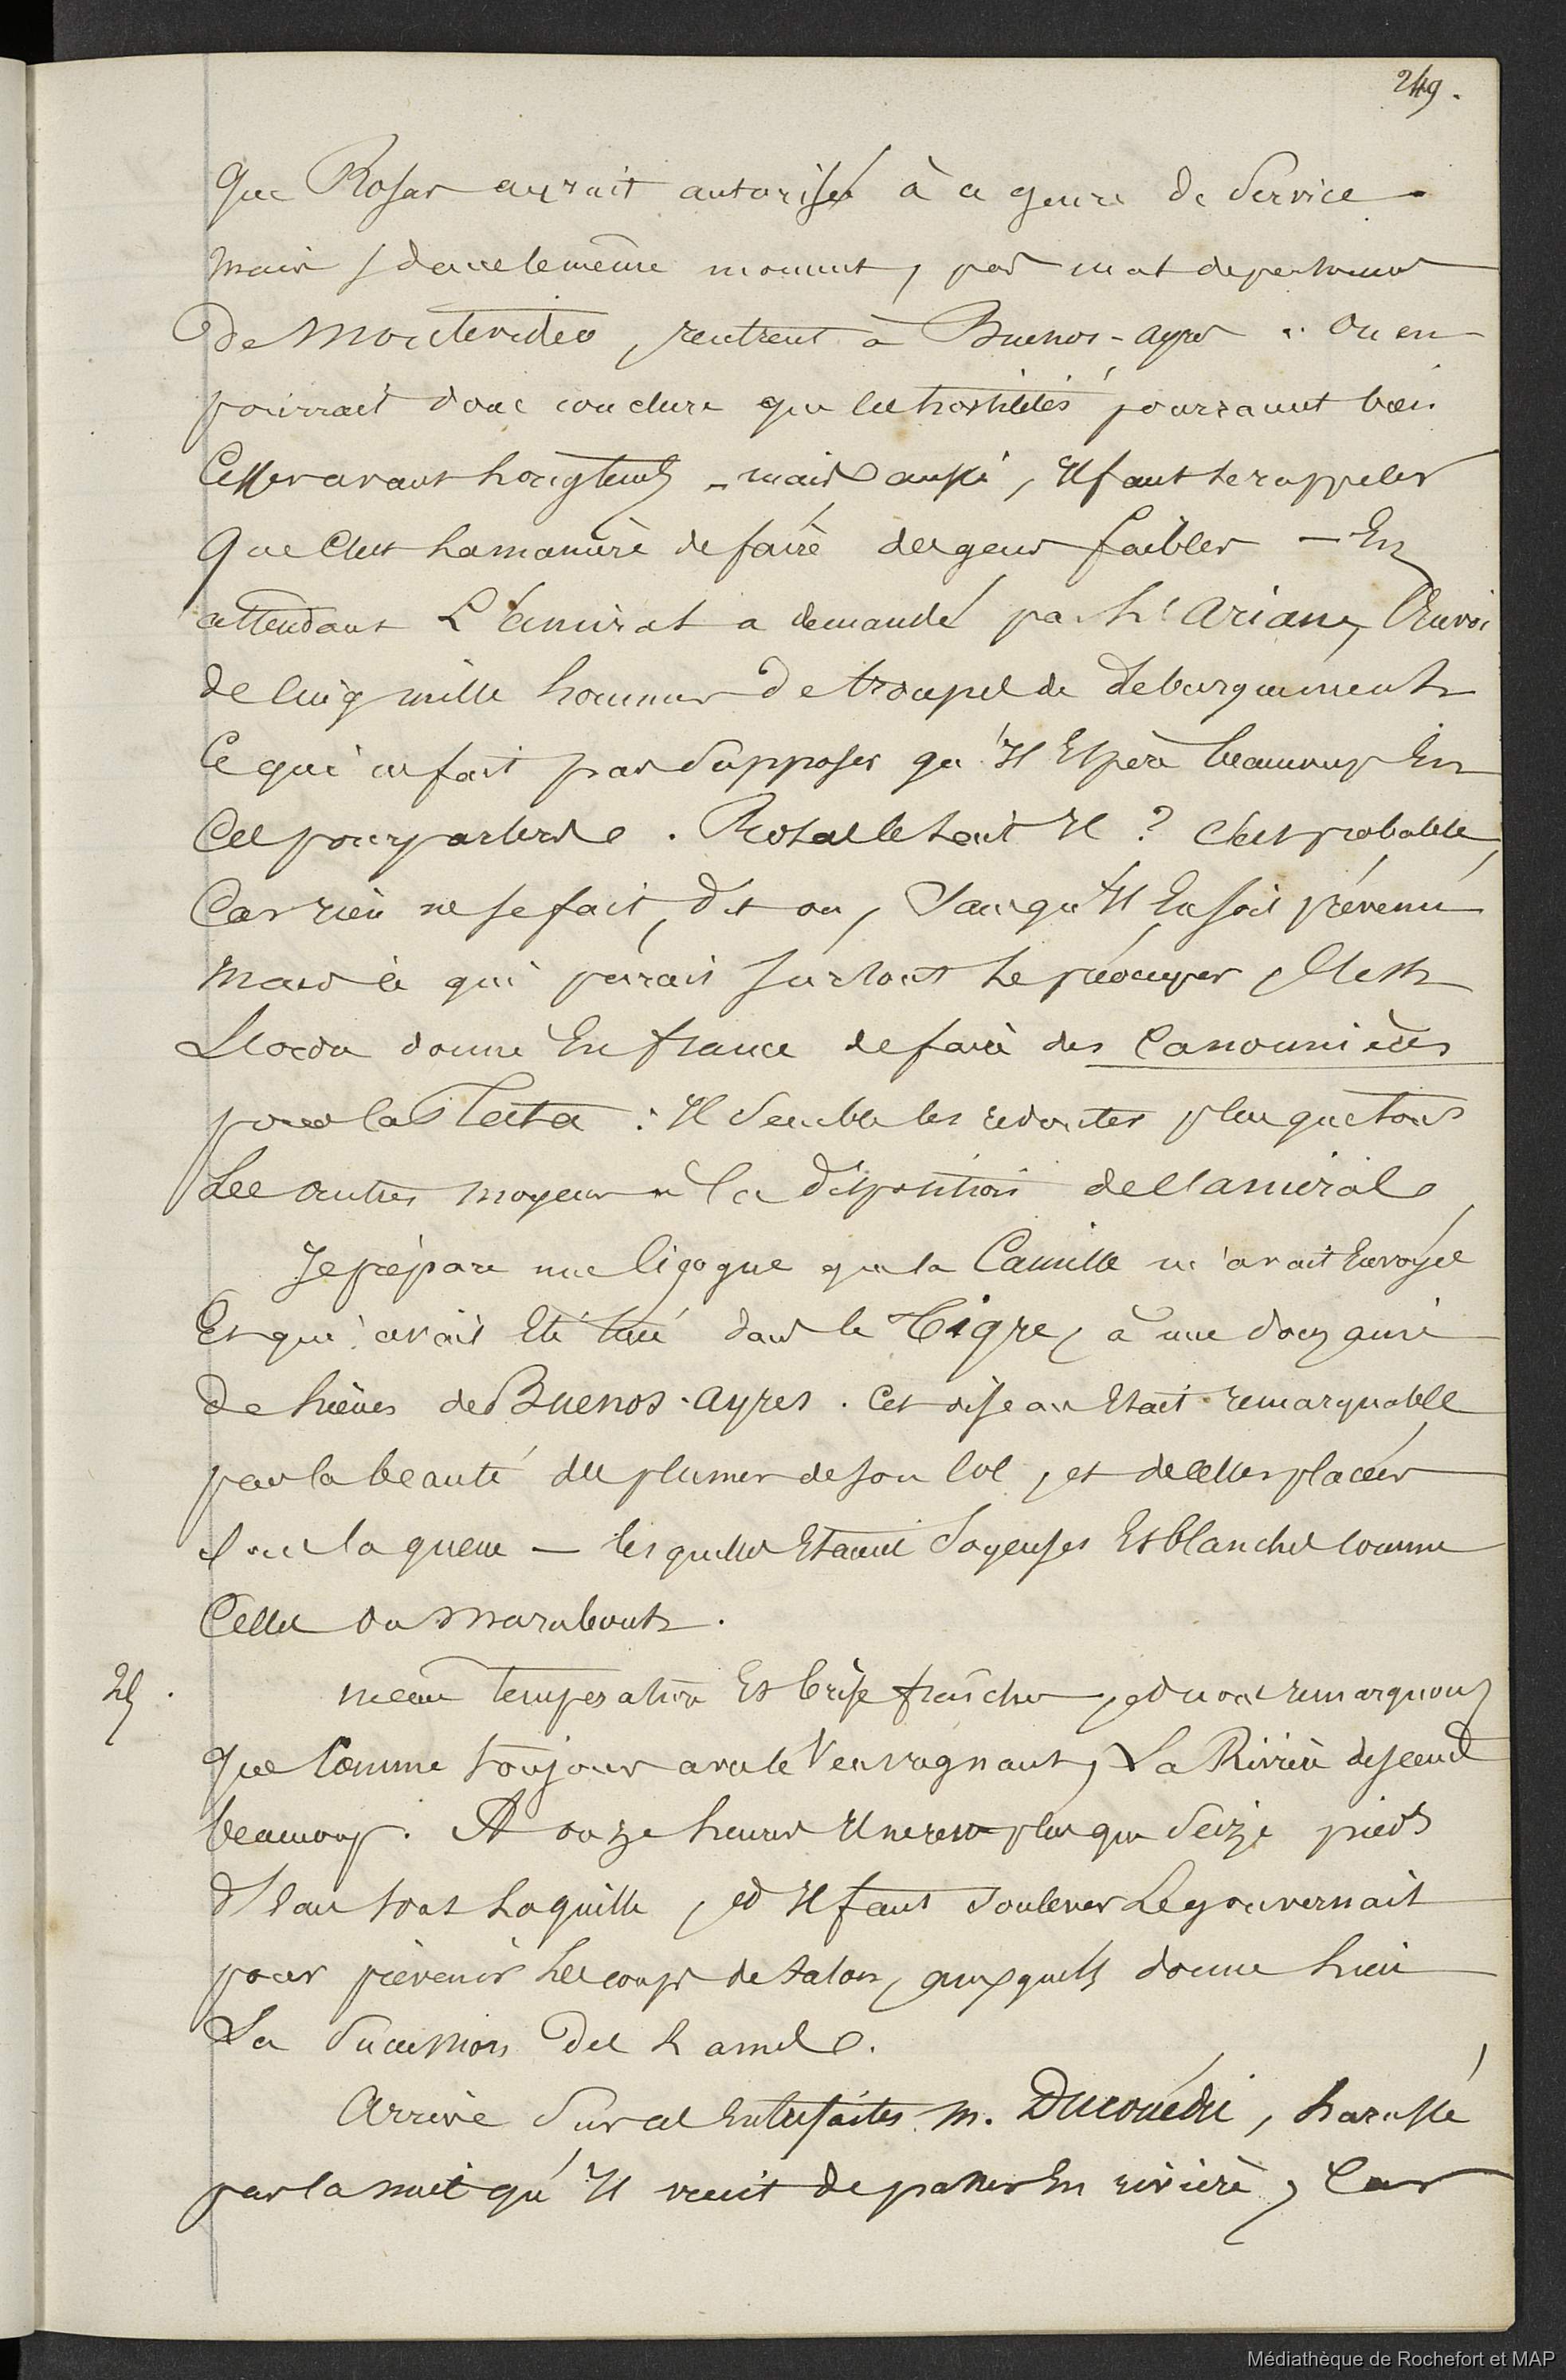 249.
que Rosas aurait autorisé à ce genre de service
mais, dans le même moment, pas mal de personnes
de Montevideo, rentrent à Buenos-ayres : on en
pourrait donc conclure que les hostilités pourraient bien
cesser avant longtems - mais aussi, il faut se rappeler
que c'est la manière de faire des gens faibles - En
attendant L'amiral a demandé par l'ariane, l'envoi
de cinq mille hommes de troupes de débarquement
ce qui ne fait pas supposer qu'il espère beaucoup en
ces pourparlers. Rosas le sait il ? c'est probable,
car rien ne se fait, dit on, sans qu'il en soit prévenu
mais ce qui parait surtout le préocuper, c'est
L'ordre donné en france de faire des canonnières
pour la Plata : il semble les redouter plus que tous
les autres moyens à la disposition de l'amiral
Je prépare une cigogne que la Camille m'avait envoyée
et qui avait été tuée dans le Tigre, à une douzaine
de lieues de Buenos-ayres. Cet oiseau était remarquable
par la beauté des plumes de son col, et de celles placées
sous la queue — lesquelles étaient soyeuses et blanches comme
celles du marabout.
25. même température et brise fraîche, et nous remarquons
que comme toujours avec le vent régnant, La Rivière descend
beaucoup. A onze heures il ne reste plus que seize pieds
d'eau sous la quille, et il faut soulever le gouvernail
pour prévenir les coups de talon, auxquels donne lieu
La succession des lames.
Arrive sur ces entrefaites m. Ducouëdic, harassé
par la nuit qu'il vient de passer en rivière, car
Médiathèque de Rochefort et MAP